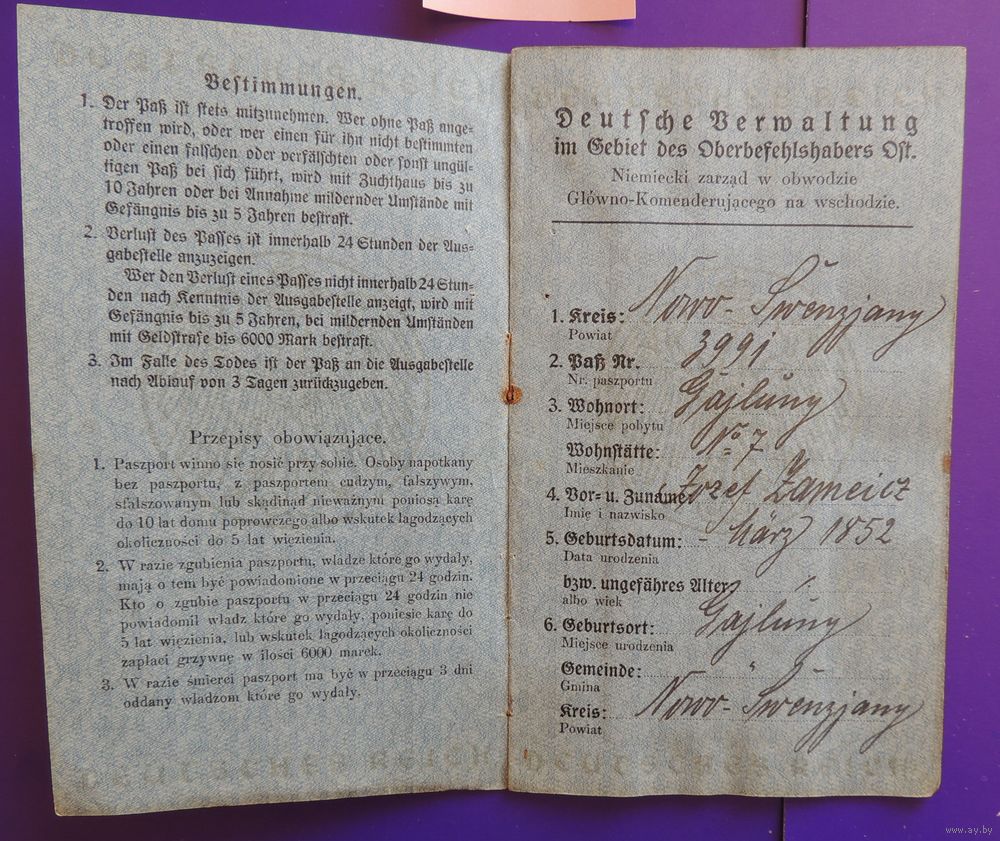 Bestimmungen.
1. Der Paß ist stets mitzunehmen. Wer ohne Paß ange-
troffen wird, oder wer einen für ihn nicht bestimmten
oder einen falschen oder verfälschten oder sonst ungül-
tigen Paß bei sich führt, wird mit Zuchthaus bis zu
10 Jahren oder bei Annahme mildernder Umstände mit
Gefängnis bis zu 5 Jahren bestraft.
2. Verlust des Passes ist innerhalb 24 Stunden der Aus-
gabestelle anzuzeigen.
Wer den Verlust eines Passes nicht innerhalb 24 Stun-
den nach Kenntnis der Ausgabestelle anzeigt, wird mit
Gefängnis bis zu 5 Jahren, bei mildernden Umständen
mit Geldstrafe bis 6000 Mark bestraft.
3. Im Falle des Todes ist der Paß an die Ausgabestelle
nach Ablauf von 3 Tagen zurückzugeben.
Przepisy obowiązujące.
1. Paszport winno się nosić przy sobie. Osoby napotkany
bez paszportu, z paszportem cudzym, fałszywym,
sfałszowanym lub skądinąd nieważnym poniosą karę
do 10 lat domu poprowczego albo wskutek łagodzących
okoliczności do 5 lat więzienia.
2. W razie zgubienia paszportu, władze które go wydały,
mają o tem być powiadomione w przeciągu 24 godzin.
Kto o zgubie paszportu w przeciągu 24 godzin nie
powiadomił władz które go wydały, poniesie karę do
5 lat więzienia, lub wskutek łagodzących okoliczności
zapłaci grzywnę w ilości 6000 marek.
3. W razie śmierci paszport ma być w przeciągu 3 dni
oddany władzom które go wydały.
DEUTSCHES REICH
Deutsche Verwaltung
im Gebiet des Oberbefehlshabers Ost.
Niemiecki zarząd w obwodzie
Główno-Komenderującego na wschodzie.
1. Kreis: Nowo-Swenzjany
Powiat
2. Paß Nr. 3991
Nr. paszportu
3. Wohnort: Gajluny
Miejsce pobytu
Wohnstätte: No 7
Mieszkanie
4. Vor- u. Zuname: Jozef Zameicz
Imię i nazwisko
5. Geburtsdatum: - März 1852
Data urodzenia
bzw. ungefähres Alter
albo wiek
6. Geburtsort: Gajluny
Miejsce urodzenia
Gemeinde: "
Gmina
Kreis: Nowo-Swenzjany
Powiat
DEUTSCHES REICH
www.ay.by